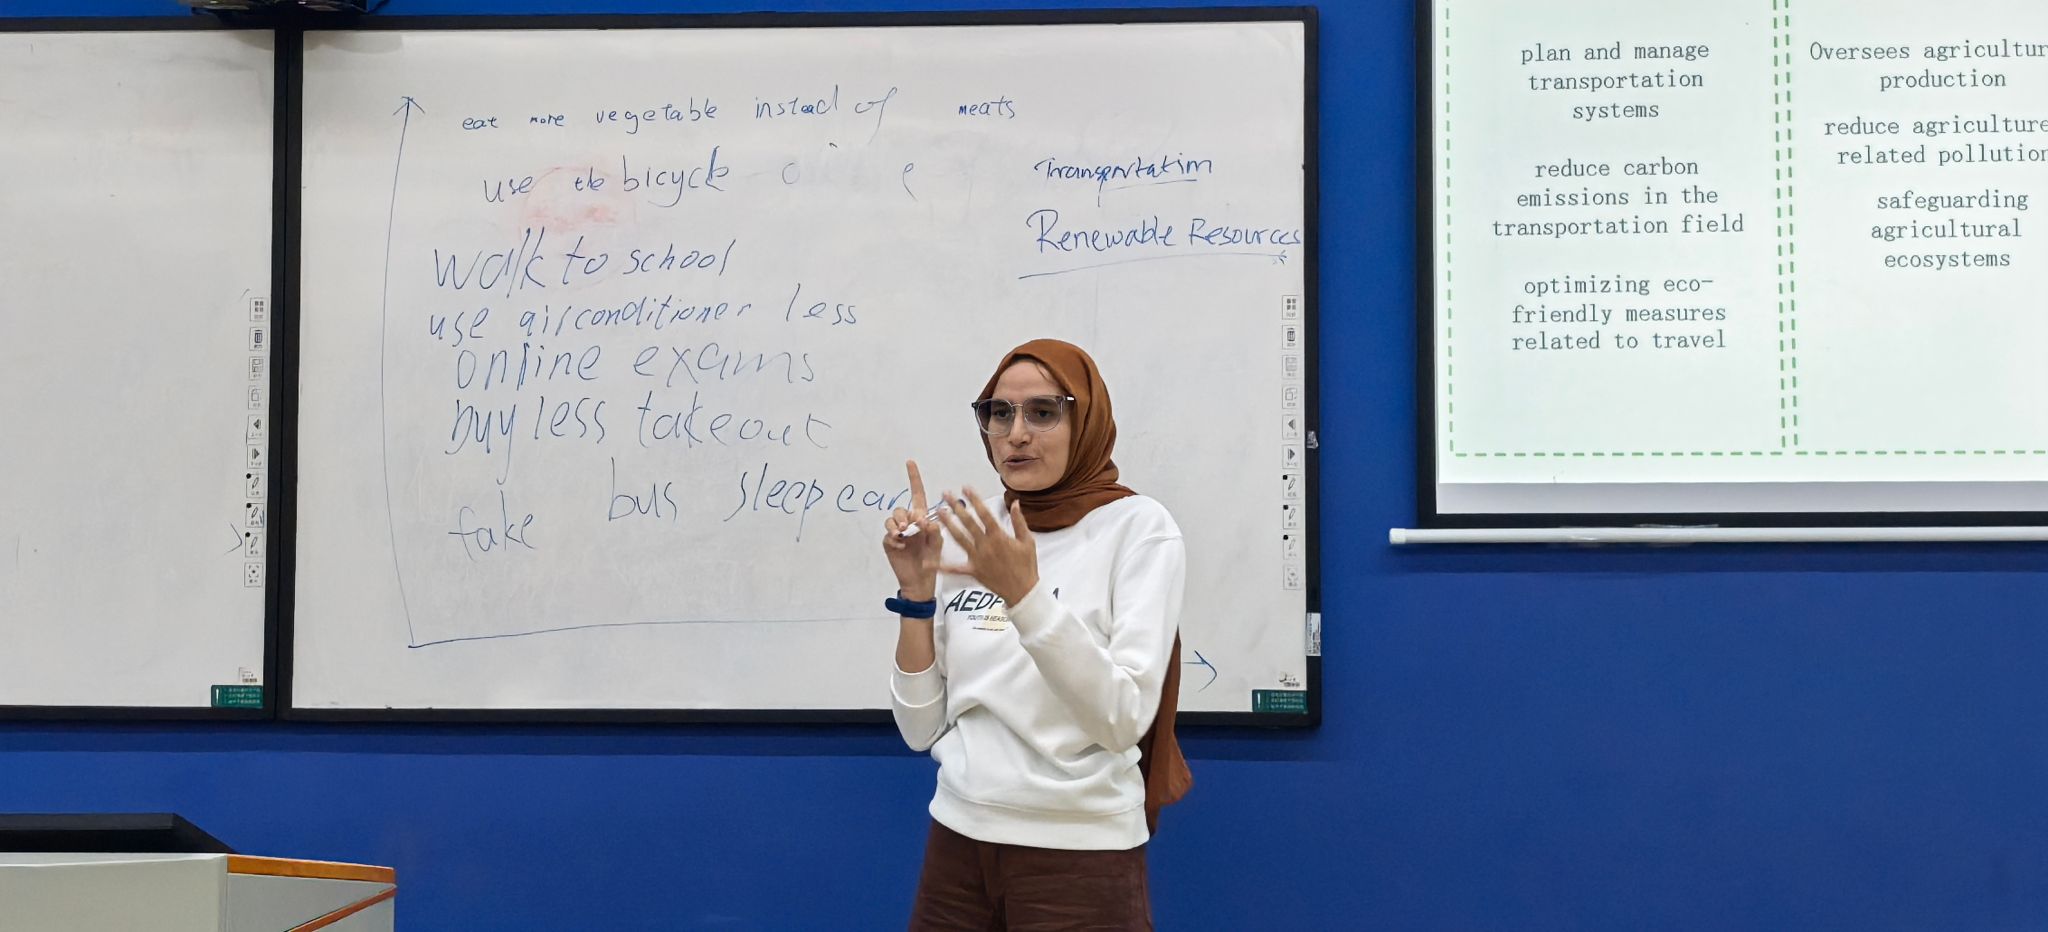 eat more vegetable instead of meats
use the bicycle
walk to school
use airconditioner less
online exams
buy less takeout
take bus sleep ear
Transportation
Renewable Resources
AEDF
plan and manage
transportation
systems
reduce carbon
emissions in the
transportation field
optimizing eco-
friendly measures
related to travel
Oversees agricultur
production
reduce agriculture
related pollution
safeguarding
agricultural
ecosystems